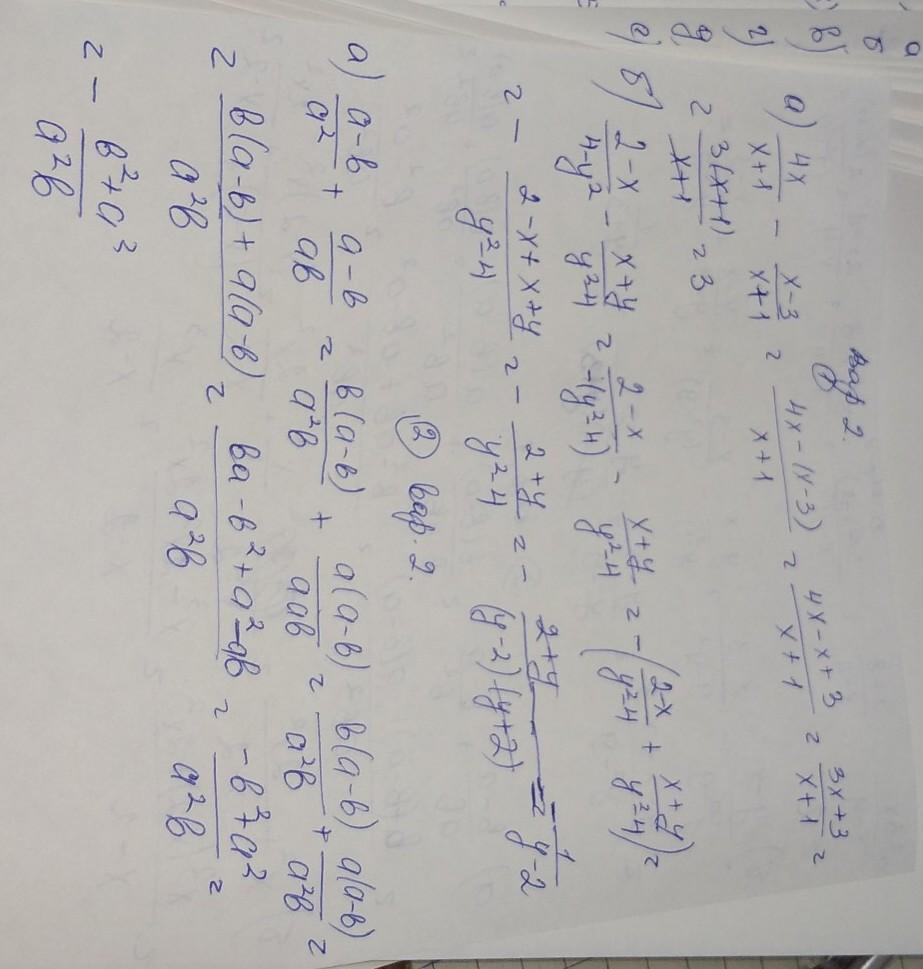 a
б
в)
г)
д
е)
вар 2.
а) 4x/(x+1) - (x-3)/(x+1) = (4x-(x-3))/(x+1) = (4x-x+3)/(x+1) = (3x+3)/(x+1) =
= 3(x+1)/(x+1) = 3
б) (2-x)/(4-y²) - (x+y)/(y²-4) = (2-x)/(-(y²-4)) - (x+y)/(y²-4) = -((2-x)/(y²-4) + (x+y)/(y²-4)) =
= - (2-x+x+y)/(y²-4) = - (2+y)/(y²-4) = - (2+y)/((y-2)(y+2)) = - 1/(y-2)
② вар. 2.
а) (a-b)/a² + (a-b)/ab = b(a-b)/a²b + a(a-b)/aab = b(a-b)/a²b + a(a-b)/a²b =
= (b(a-b)+a(a-b))/a²b = (ba-b²+a²-ab)/a²b = (-b²+a²)/a²b =
= - (b²+a²)/a²b